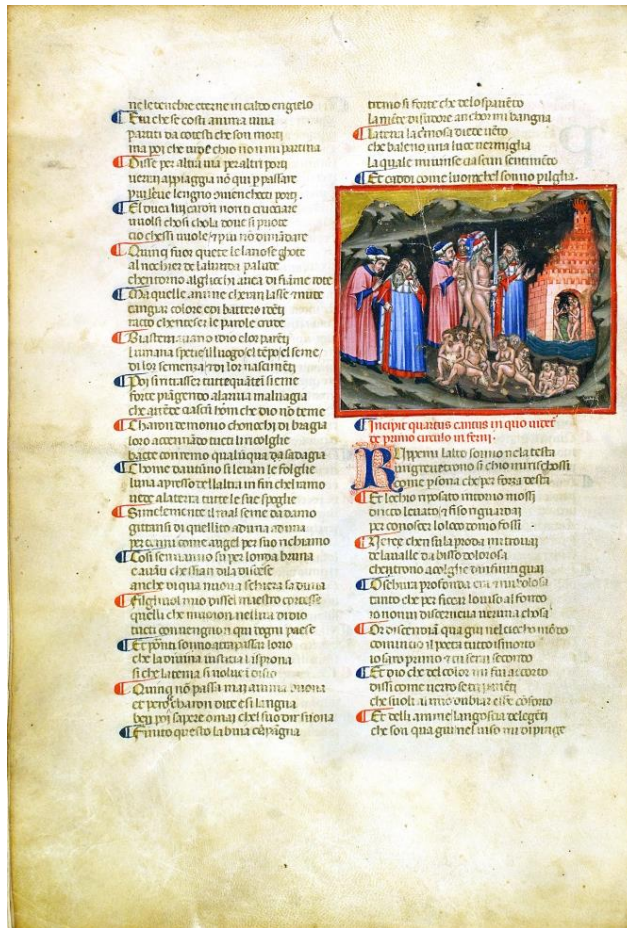 ne le tenebre eterne in caldo en gielo
Et tu che se costi anima uiua
partiti da cotesti che son morti
ma poi che chio non mi partiua
Disse per altra uia per altri porti
uerrai a piaggia nō qui p passare
piu lieue lengno conuien che ti porti
El duca lui caron non ti crucciare
uuolsi chosi chola doue si puote
cio che si uuole piu nō dimādare
Quinci fuor quete le lanose ghote
al nochier de la liuida palude
chentorno algliochi auea di fiāme rote
Ma quelle anime cheran lasse nude
cangiar colore e di
ratto chenteser le parole crude
Biastemauano idio e lor parēti
lumana spetie il luogo el tēpo el seme
di lor semenza di lor nascimēti
Poi si ritrasser tutte quāte insieme
forte piangendo a la riua maluagia
che ciascū hom che dio nō teme
Charon demonio chon ochi di bragia
loro accennādo tucti li racolghe
batte con remo qualūqua sadagia
Chome dautūno si leuan le folglie
luna apresso de laltra in fin chel ramo
uede a la terra tutte le sue spoglie
Similemente il mal seme dadamo
gittansi di quel lito ad una ad una
per cenni come augel per suo richiamo
Cosi sen uanno su per londa bruna
e auāti che sian di la discese
anche di qua nuoua schiera saduna
Filgluol mio disse l maestro cortese
quelli che muoion nell ira didio
tucti conuengnon qui dogni paese
Et pōnti sono a trapassar lo rio
che la diuina iustitia li sprona
si che la tema si uolue in disio
Quinci nō passa mai anima buona
et pero se charon di te si langna
ben poi sapere omai chel suo dir suona
Finito questo la buia cāpangna
tremo si forte che de lo spauēto
la mēte di sudore anchor mi bangna
La terra lagrimosa diede uēto
che baleno una luce uermiglia
la quale mi uinse ciascun sentimēto
Et caddi come luom chel sonno pilglia.
Incipit quartus cantus in quo
de primo circulo inferni.
Ruppemi lalto sonno nela testa
un greue trono si chio mi rischossi
come psona che per forza e desta
Et lochio riposato intorno mossi
dricto leuato et fiso riguardai
per conoscer lo loco douio fossi
Uer e che n su la proda mi trouai
de la ualle dabisso dolorosa
che n trono acolghe dinfiniti guai
Obschura profonda era et nubilosa
tanto che per ficcar lo uiso al fondo
io non ui discernea ueruna chosa
Or discendiā qua giu nel ciecho mōdo
comincio il poeta tucto ismorto
io saro primo et tu serai secondo
Et io che del color mi fui accorto
dissi come uerro se tu pauēti
che suoli al mio dubiar esse cōforto
Et delli a me langoscia de le gēti
che son qua giu nel uiso mi dipinge